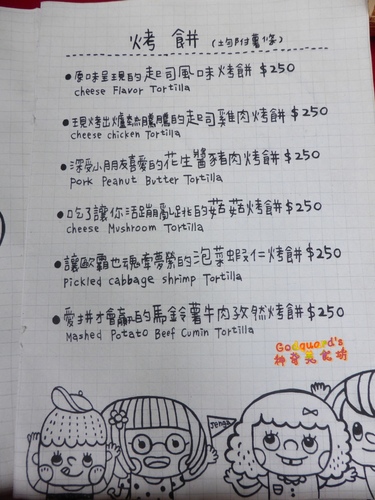 烤 餅 (均附薯條)
●原味呈現的起司風味烤餅 $250
cheese Flavor Tortilla
●現烤出爐熱騰騰的起司雞肉烤餅 $250
cheese chicken Tortilla
●深受小朋友喜愛的花生醬豬肉烤餅 $250
Pork Peanut Butter Tortilla
●吃了讓你活蹦亂跳的菇菇烤餅 $250
cheese Mushroom Tortilla
●讓歐霸也魂牽夢縈的泡菜蝦仁烤餅 $250
Pickled cabbage shrimp Tortilla
●愛拼才會贏的馬鈴薯牛肉孜然烤餅 $250
Mashed Potato Beef Cumin Tortilla
Godguard's
神奇兔能坊
Jenga